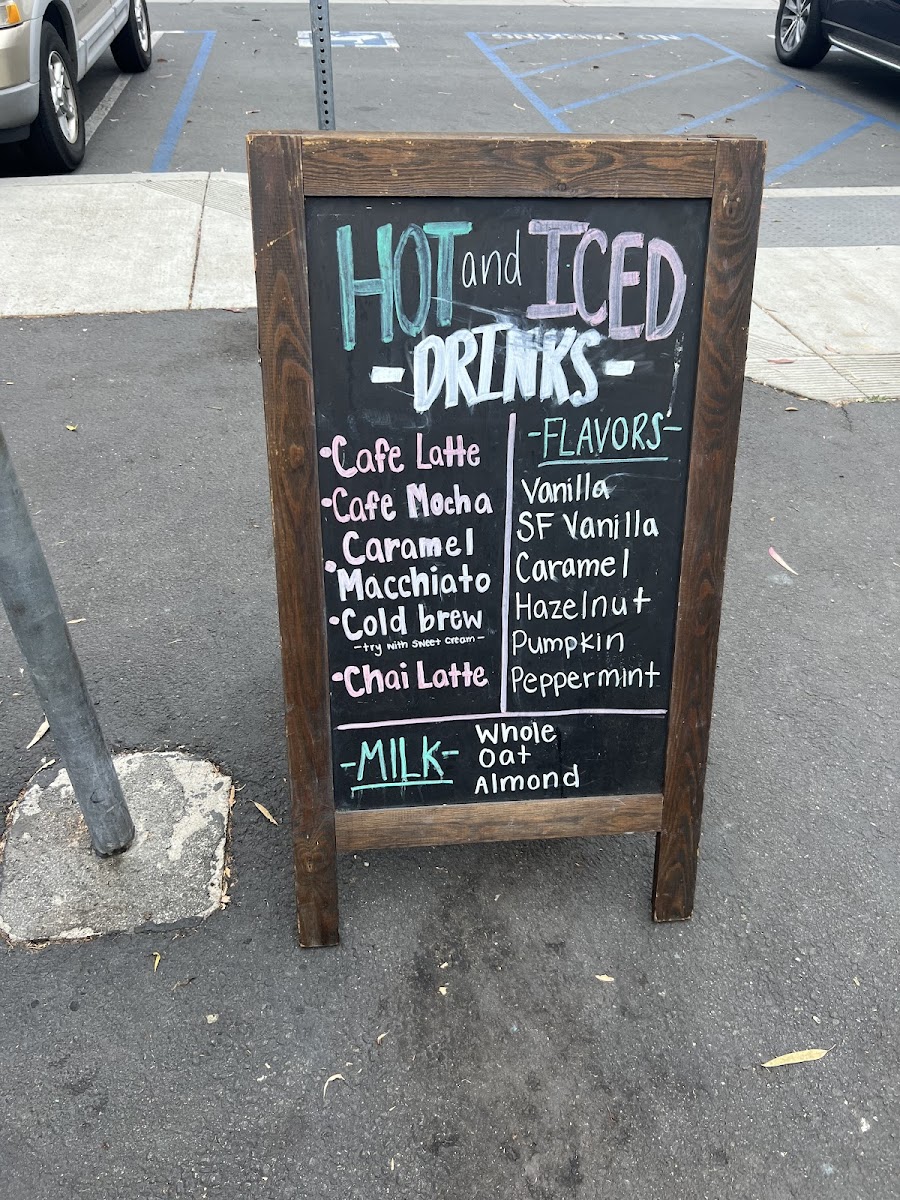 NO PARKING
HOT and ICED
-DRINKS-
•Cafe Latte
•Cafe Mocha
•Caramel
Macchiato
•Cold brew
-try with sweet cream-
•Chai Latte
-FLAVORS-
Vanilla
SF Vanilla
Caramel
Hazelnut
Pumpkin
Peppermint
-MILK-
Whole
Oat
Almond